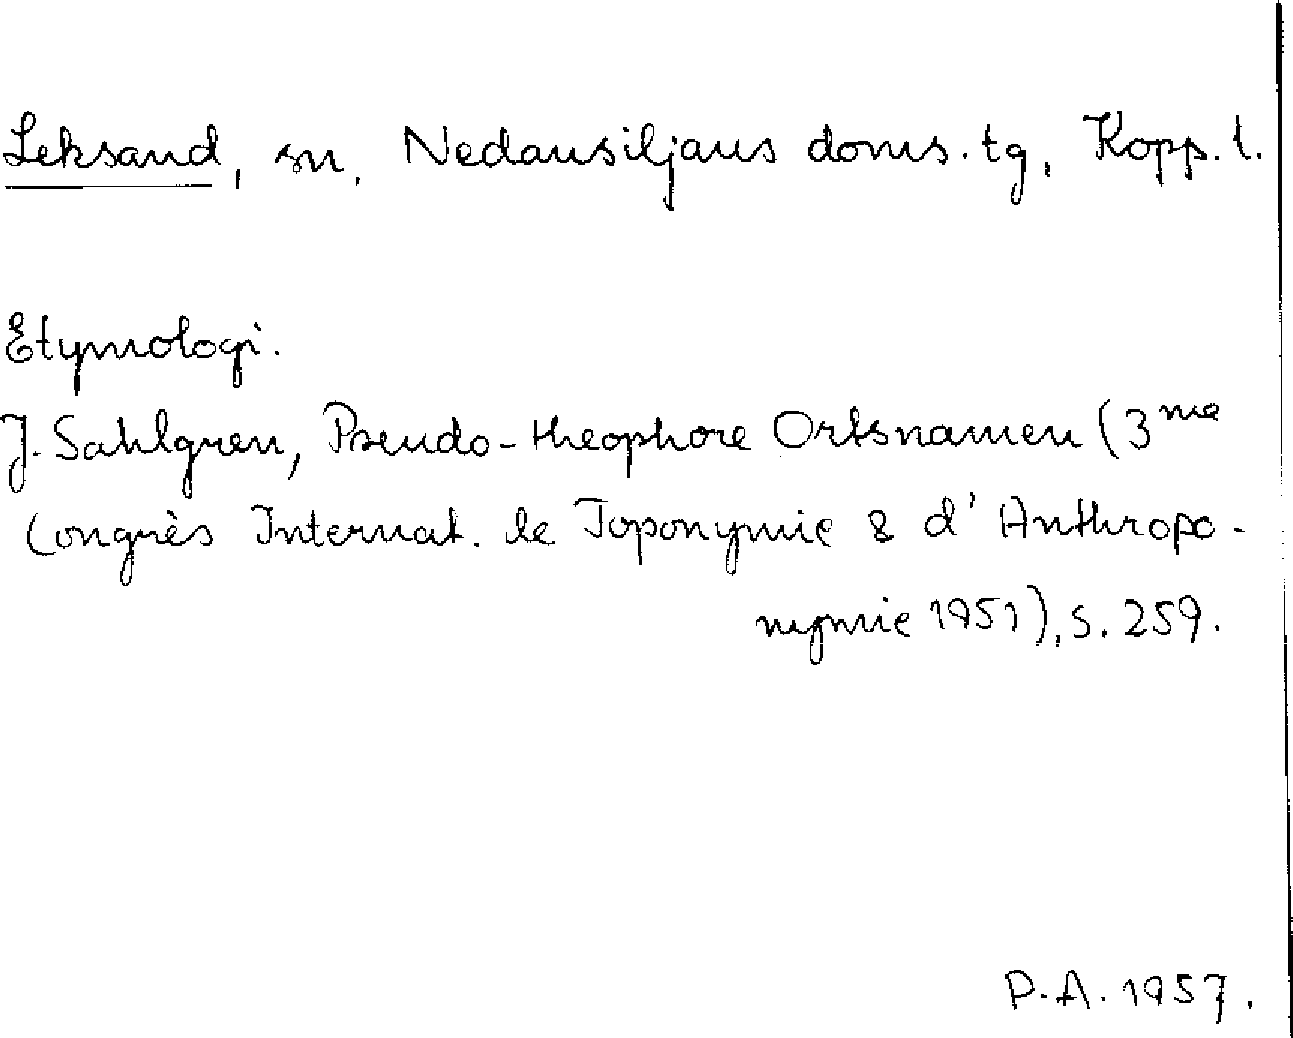 Leksand, sn, Nedansiljans doms. tg, Kopp. l.
Etymologi.
J. Sahlgren, Pseudo-theophore Ortsnamen (3me
Congrès Internat. de Toponymie & d'Anthropo-
nymie 1951), s. 259.
P.A. 1957.